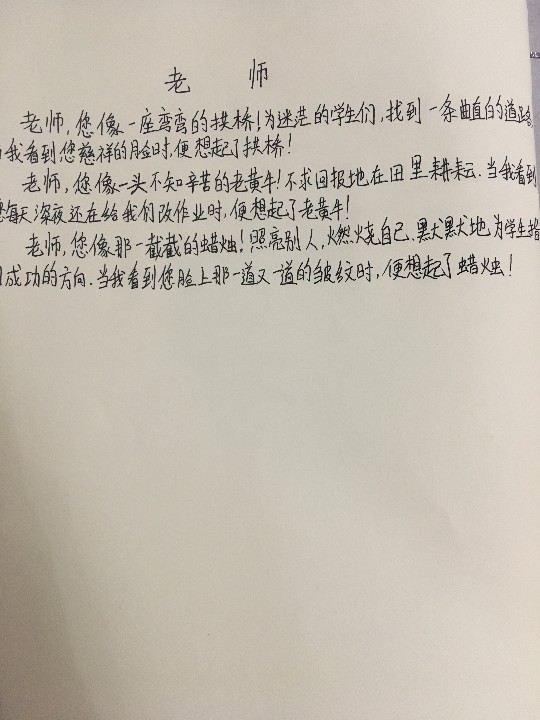 老 师
老师,您像一座弯弯的拱桥!为迷茫的学生们,找到一条曲直的道路.
我看到您慈祥的脸时,便想起了拱桥!
老师,您像一头不知辛苦的老黄牛!不求回报地在田里耕耘.当我看到
您每天深夜还在给我们改作业时,便想起了老黄牛!
老师,您像那一截截的蜡烛!照亮别人,燃烧自己.默默地为学生指
成功的方向.当我看到您脸上那一道又一道的皱纹时,便想起了蜡烛!